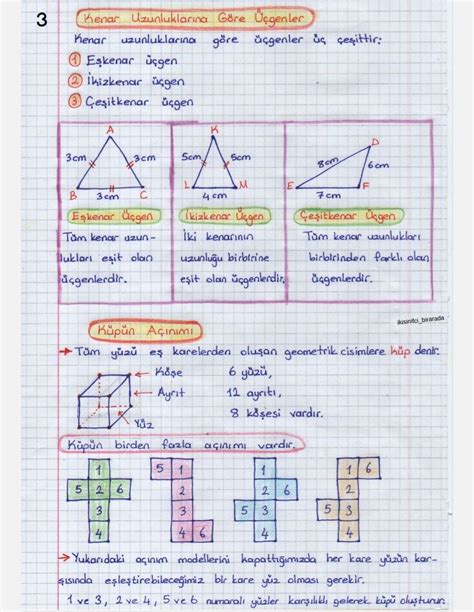 3
Kenar Uzunluklarına Göre Üçgenler
Kenar uzunluklarına göre üçgenler üç çeşittir:
1 Eşkenar üçgen
2 İkizkenar üçgen
3 Çeşitkenar üçgen
A
3cm 3cm
B 3cm C
K
5cm 5cm
L 4cm M
D
8cm 6cm
E 7cm F
Eşkenar Üçgen
Tüm kenar uzun-
lukları eşit olan
üçgenlerdir.
İkizkenar Üçgen
İki kenarının
uzunluğu birbirine
eşit olan üçgenlerdir.
Çeşitkenar Üçgen
Tüm kenar uzunlukları
birbirinden farklı olan
üçgenlerdir.
ikisinifci_birarada
Küpün Açınımı
→ Tüm yüzü eş karelerden oluşan geometrik cisimlere küp denir.
Köşe 6 yüzü,
Ayrıt 12 ayrıtı,
Yüz 8 köşesi vardır.
Küpün birden fazla açınımı vardır.
1
5 2 6
3
4
5 1
2
3
4 6
1
2
5 3
4 6
1 6
2
5 3
4
→ Yukarıdaki açınım modellerini kapattığımızda her kare yüzün kar-
şısında eşleştirebileceğimiz bir kare yüz olması gerekir.
1 ve 3, 2 ve 4, 5 ve 6 numaralı yüzler karşılıklı gelerek küpü oluşturur.